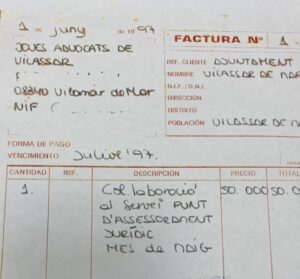 1 de juny de 1997
FACTURA Nº 1
JOVES ADVOCATS DE
VILASSAR
F
08340 Vilassar de Mar
NIF
REF. CLIENTE AJUNTAMENT
NOMBRE VILASSAR DE MAR
N.I.F. / D.N.I.
DIRECCIÓN
DISTRITO
POBLACIÓN VILASSAR DE M
FORMA DE PAGO
VENCIMIENTO Juliol '97.
CANTIDAD REF. DESCRIPCIÓN PRECIO TOTAL
1. Col·laboració 50.000 50.0
al servei PUNT
D'ASSESSORAMENT
JURÍDIC
MES de MAIG